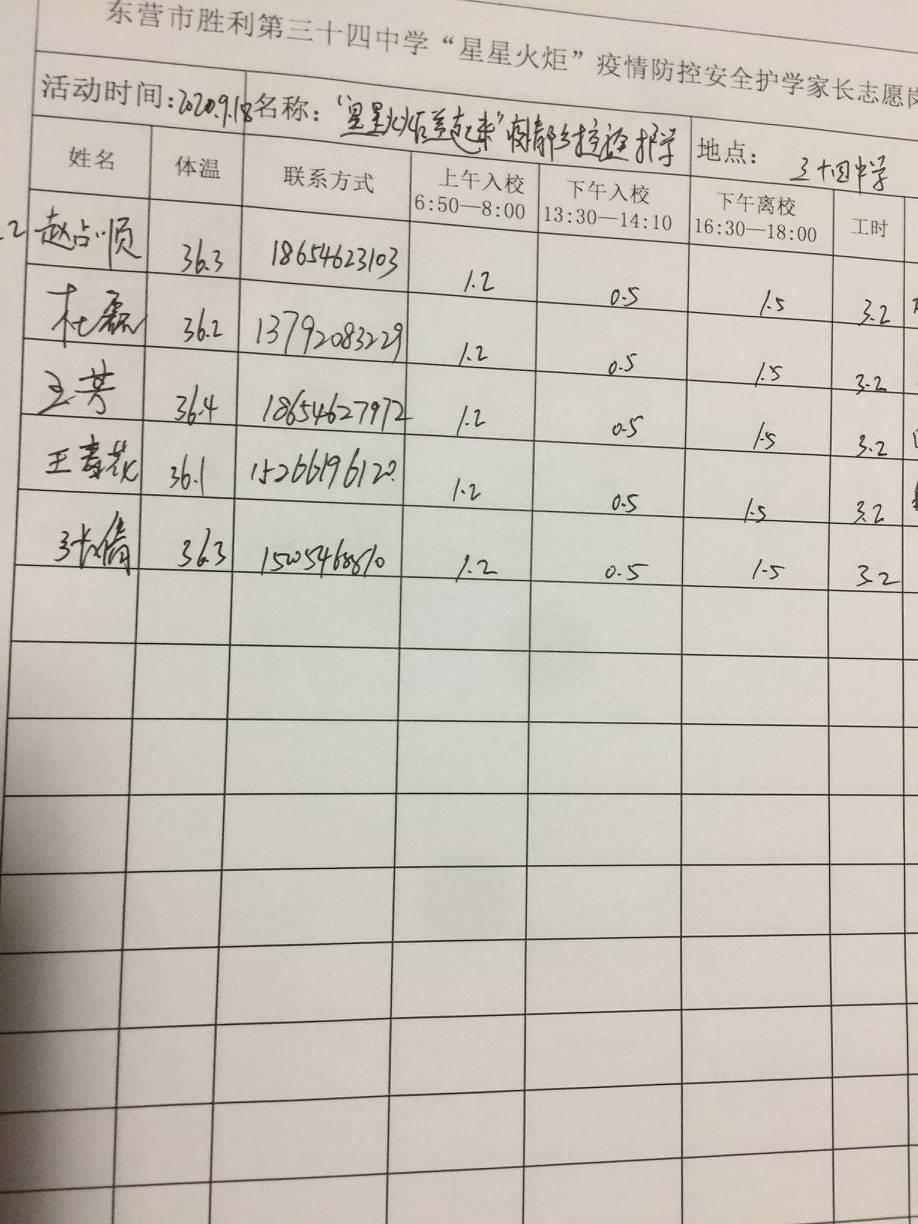 东营市胜利第三十四中学“星星火炬”疫情防控安全护学家长志愿岗
活动时间:2020.9.18 名称:“星星火炬 起来” 护学 地点: 三十四中学
姓名 体温 联系方式 上午入校 6:50—8:00 下午入校 13:30—14:10 下午离校 16:30—18:00 工时
.2 赵占顺 36.3 18654623103 1.2 0.5 1.5 3.2
杜磊 36.2 13792083229 1.2 0.5 1.5 3.2
王芳 36.4 18654627972 1.2 0.5 1.5 3.2
王春花 36.1 15266196120 1.2 0.5 1.5 3.2
张倩 36.3 1.2 0.5 1.5 3.2